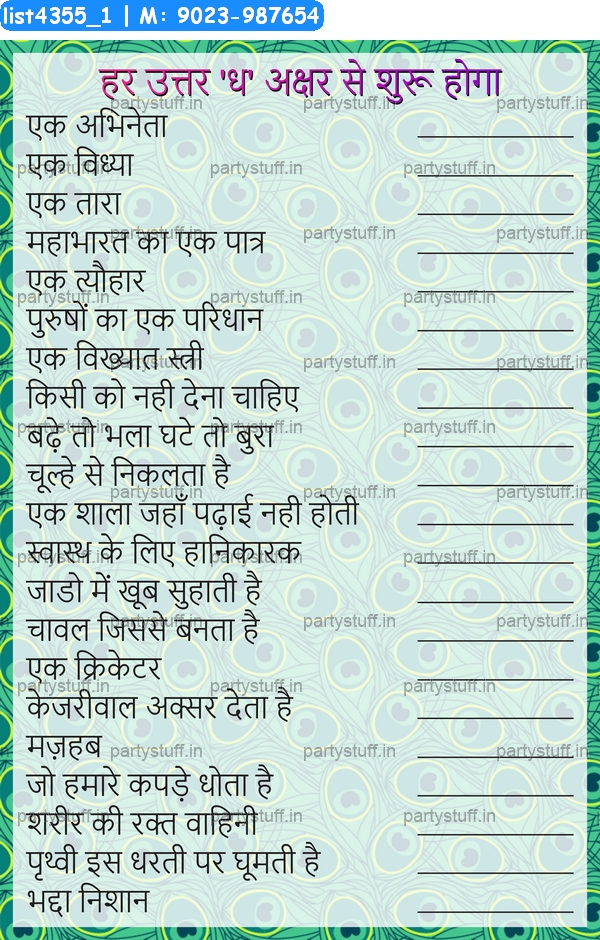 list4355_1 | M: 9023-987654
हर उत्तर 'ध' अक्षर से शुरू होगा
एक अभिनेता
एक विध्या
एक तारा
महाभारत का एक पात्र
एक त्यौहार
पुरुषों का एक परिधान
एक विख्यात स्त्री
किसी को नही देना चाहिए
बढ़े तो भला घटे तो बुरा
चूल्हे से निकलता है
एक शाला जहाँ पढ़ाई नही होती
स्वास्थ के लिए हानिकारक
जाडो में खूब सुहाती है
चावल जिससे बनता है
एक क्रिकेटर
केजरीवाल अक्सर देता है
मज़हब
जो हमारे कपड़े धोता है
शरीर की रक्त वाहिनी
पृथ्वी इस धरती पर घूमती है
भद्दा निशान
partystuff.in